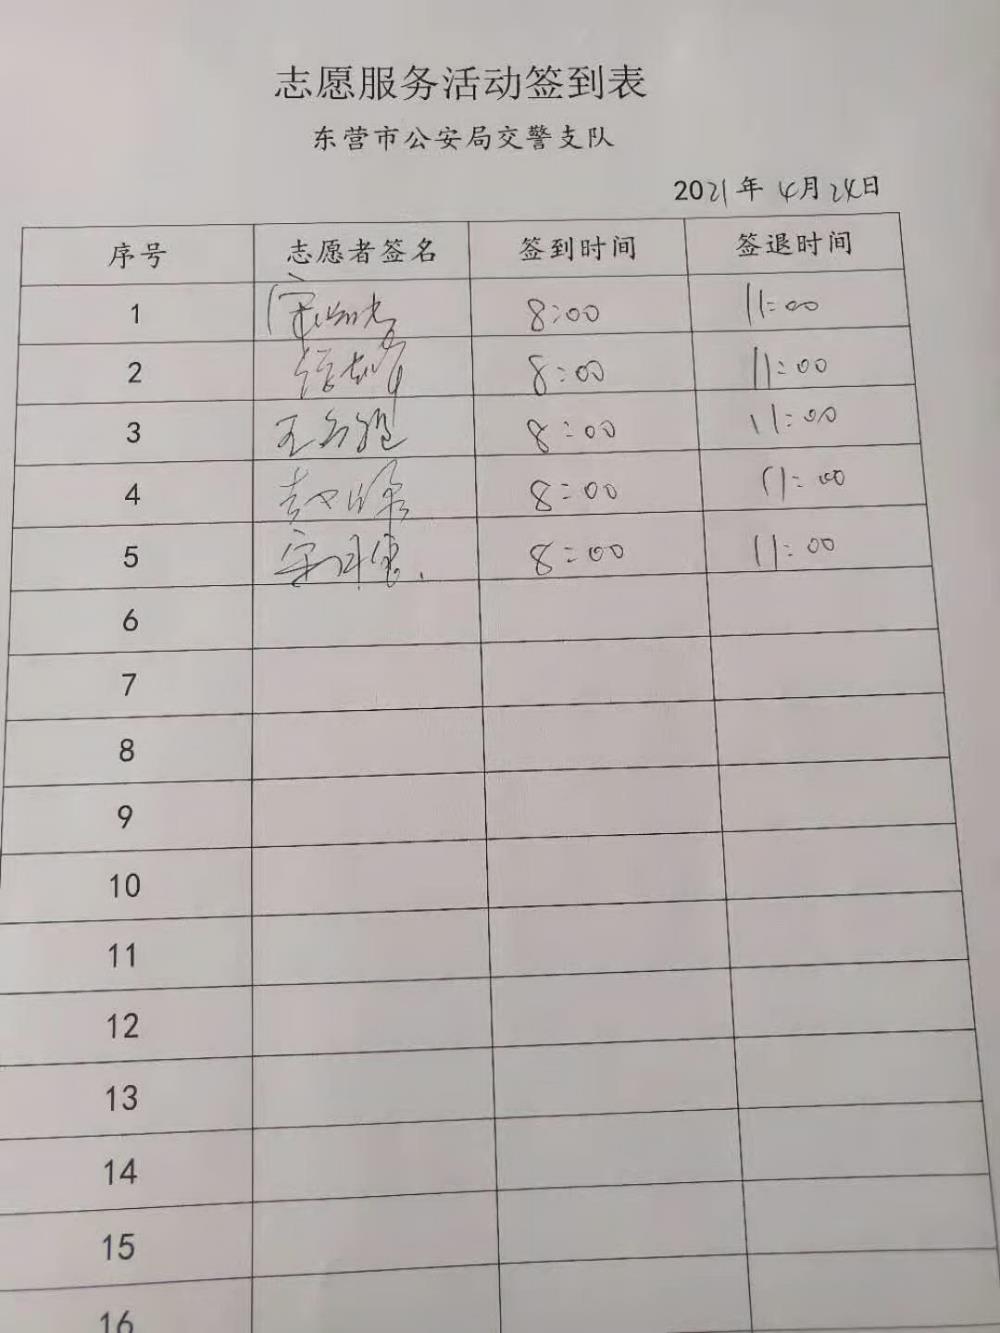 志愿服务活动签到表
东营市公安局交警支队
2021年 4月24日
序号 志愿者签名 签到时间 签退时间
1 8:00 11:00
2 8:00 11:00
3 王 8:00 11:00
4 赵 8:00 11:00
5 宋 8:00 11:00
6
7
8
9
10
11
12
13
14
15
16